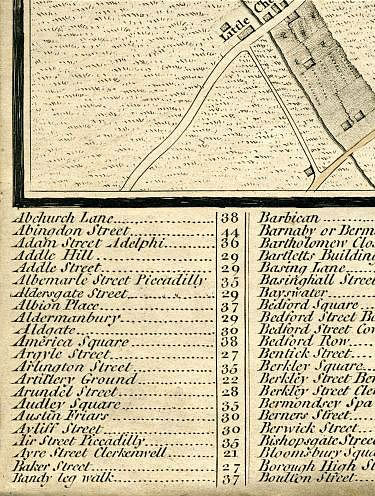 Little Che
Abchurch Lane 38
Abingdon Street 44
Adam Street Adelphi 36
Addle Hill 29
Addle Street 29
Albemarle Street Piccadilly 35
Aldersgate Street 29
Albion Place 37
Aldermanbury 29
Aldgate 30
America Square 38
Argyle Street 27
Arlington Street 35
Artillery Ground 22
Arundel Street 28
Audley Square 35
Austin Friars 30
Ayliff Street 30
Air Street Piccadilly 35
Ayre Street Clerkenwell 21
Baker Street 27
Bandy leg walk 37
Barbican
Barnaby or Berm
Bartholomew Clos
Bartletts Building
Basing Lane
Basinghall Street
Bayswater
Bedford Square
Bedford Street Be
Bedford Street Cov
Bedford Row
Bentick Street
Berkley Square
Berkley Street Ber
Berkley Street Cler
Bermondsey Spa
Berners Street
Berwick Street
Bishopsgate Street
Bloomsbury Squa
Borough High St
Boulton Street